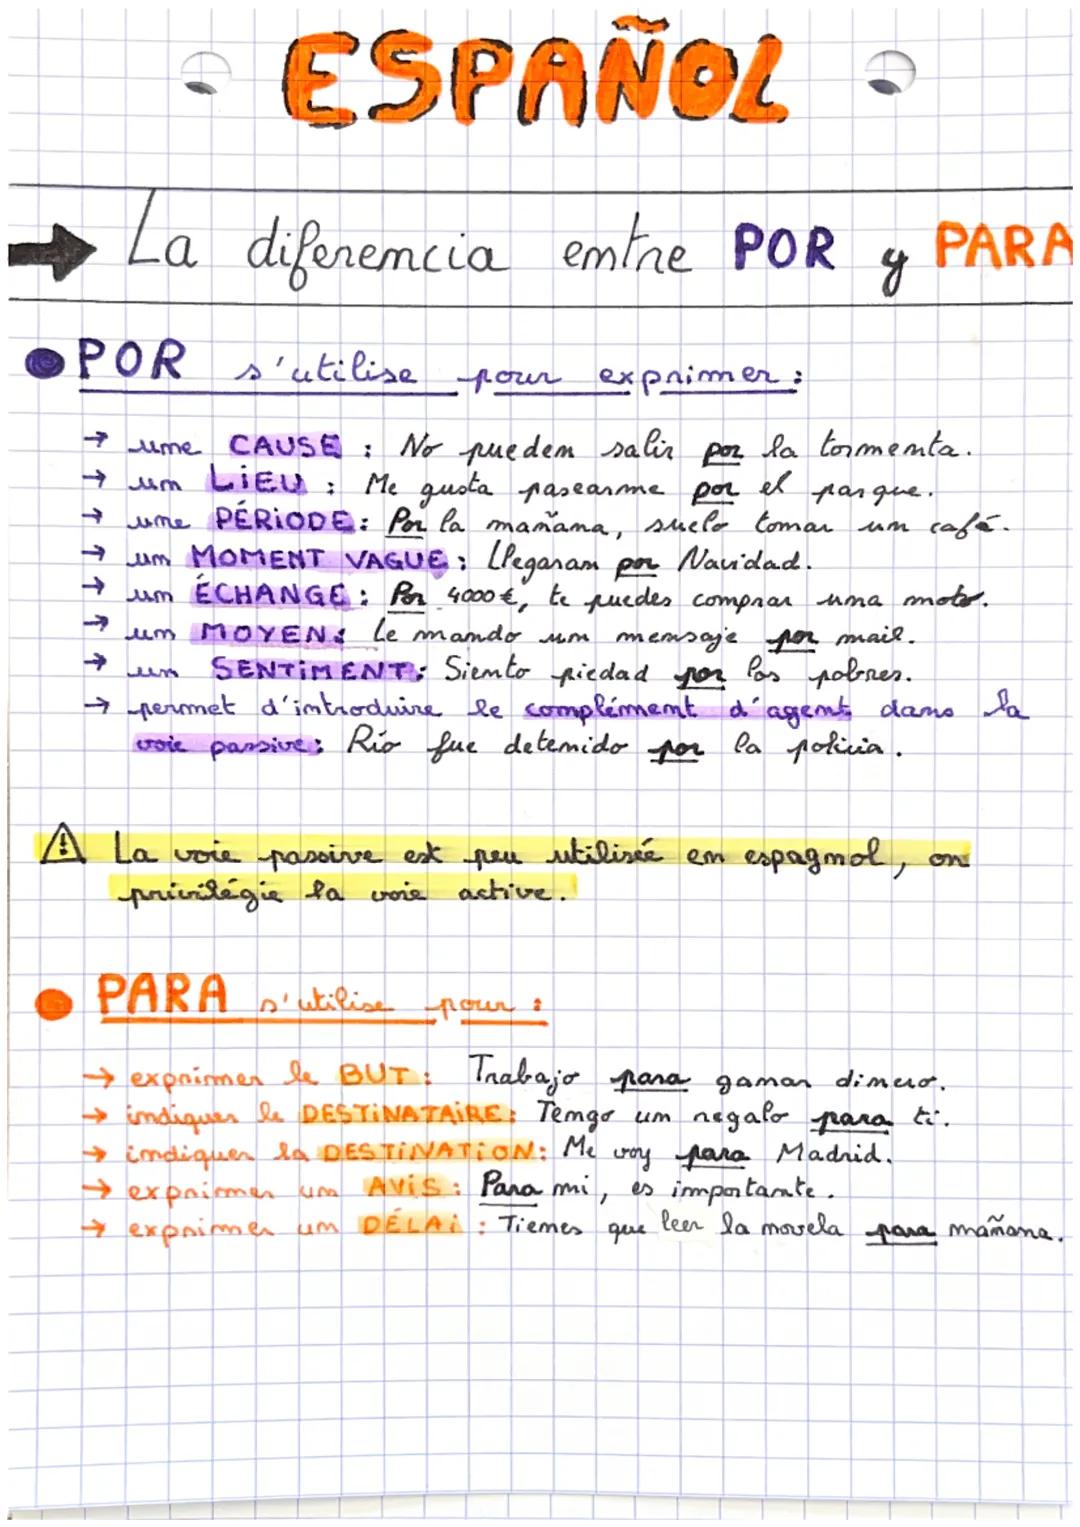 ESPAÑOL
→ La diferencia entre POR y PARA
• POR s'utilise pour exprimer :
→ une CAUSE : No pueden salir por la tormenta.
→ un LiEU : Me gusta pasearme por el parque.
→ une PÉRiODE : Por la mañana, suelo tomar un café.
→ un MOMENT VAGUE : Llegaran por Navidad.
→ un ÉCHANGE : Por 4000€, te puedes comprar una moto.
→ un MOYEN : Le mando un mensaje por mail.
→ un SENTiMENT : Siento piedad por los pobres.
→ permet d'introduire le complément d'agent dans la
voie passive : Río fue detenido por la policia.
⚠ La voie passive est peu utilisée en espagnol, on
privilégie la voie active.
• PARA s'utilise pour :
→ exprimer le BUT : Trabajo para ganar dinero.
→ indiquer le DESTiNATAiRE : Tengo un regalo para ti.
→ indiquer la DESTiNATiON : Me voy para Madrid.
→ exprimer un AViS : Para mi, es importante.
→ exprimer un DÉLAi : Tienes que leer la novela para mañana.